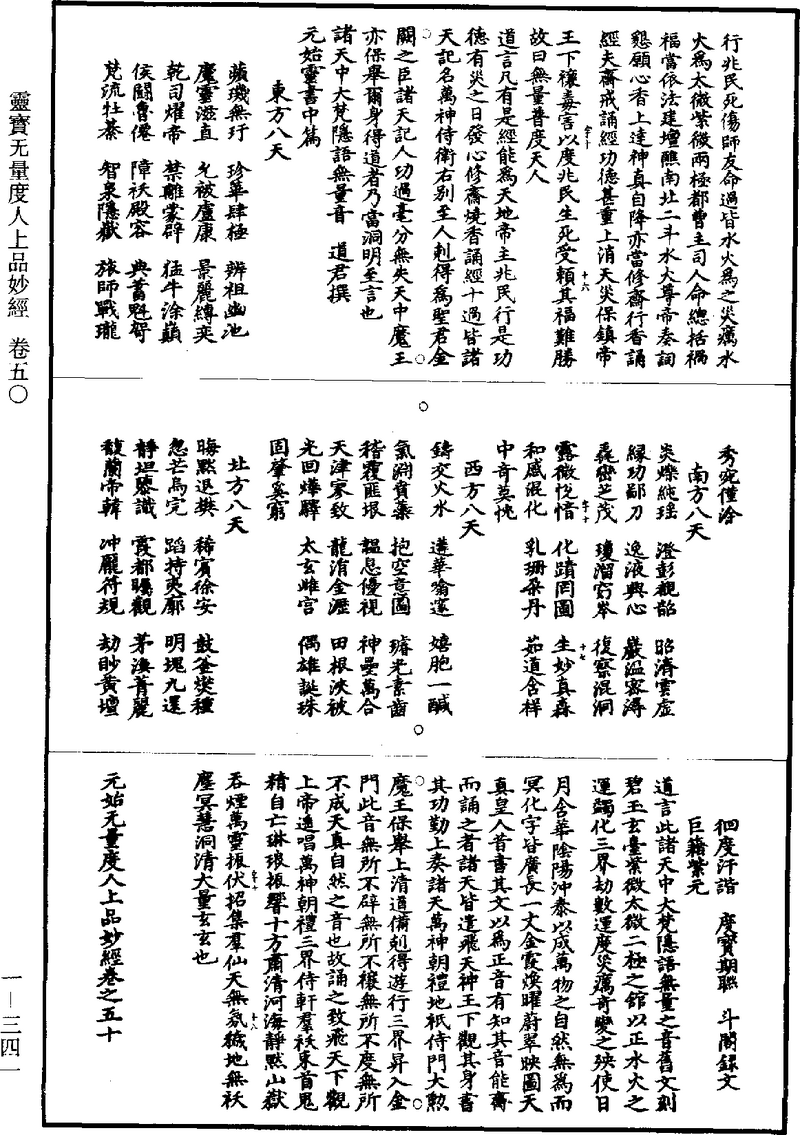 靈寶无量度人上品妙經　卷五〇
行兆民死傷師友命過皆水火為之災癘水
火為太微紫微兩極都曹主司人命總括禍
福當依法建壇醮南北二斗水火尊帝奏詞
懇願心香上達神真自降亦當修齋行香誦
經夫齋戒誦經功德甚重上消天災保鎮帝
王下禳毒害以度兆民生死受賴其福難勝
故曰無量普度天人
道言凡有是經能為天地帝主兆民行是功
德有災之日發心修齋燒香誦經十過皆諸
天記名萬神侍衛右別至人剋得為聖君金
闕之臣諸天記人功過毫分無失天中魔王
亦保舉爾身得道者乃當洞明至言也
諸天中大梵隱語無量音　道君撰
元始靈書中篇
東方八天
蘋璣無玗　珍華肆極　辨祖幽池
魔靈滋直　允被盧康　景麗縛奕
乾司燿帝　禁離蒙辟　猛牛涂巔
侯鬭魯僊　障袄殿容　典蓄魁
梵流牡綦　智泉隱嶽　旅師戰瓏
秀宛僅洽
南方八天
炎爍純瑶　澄彭觀韶　昭清雲虛
緣功鄙刀　逸液輿心　嚴溫密潯
毳密芝茂　瓊溜窈岑　復察混洞
露微悅愔　化蹟罔圖　生妙真森
和感混化　乳珊朶丹　茹道含样
中奇莫恍
西方八天
鑄交火水　蓮華喻邃　嬉胞一醎
氣淵賓藥　抱空意圖　瓋光素齒
稽覆匪垠　韞息優視　神曼萬合
天津寡致　龍消金灑　田根浹被
光回燁驛　太玄雌宫　偶雄誕珠
固肇奚窮
北方八天
晦黙退樊　稀賓徐安　鼓釜災種
忽芒烏完　蹈持奭廓　明塊九還
靜坦蔘識　霞都矚觀　茅渙菁麗
馥蘭帝韓　冲龎符規　劫眇黄壇
徊度汗諧　度寶期聮　斗閣錄文
巨籍紫元
道言此諸天中大梵隱語無量之音舊文刻
碧玉玄臺紫微太微二極之館以正水火之
運蠲化三界劫數運度災癘奇變之殃使日
月含華陰陽沖泰以成萬物之自然無為而
冥化字皆廣長一丈金霞煥曜蔚翠映圖天
真皇人昔書其文以為正音有知其音能齋
而誦之者諸天皆遣飛天神王下觀其身書
其功勤上奏諸天萬神朝禮地衹侍門大勲
魔王保舉上清道備剋得遊行三界昇入金
門此音無所不辟無所不禳無所不度無所
不成天真自然之音也故誦之致飛天下觀
上帝遙唱萬神朝禮三界侍軒羣袄束首鬼
精自亡琳琅振響十方肅清河海靜黙山嶽
吞煙萬靈振伏招集羣仙天無氛穢地無袄
塵冥慧洞清大量玄玄也
元始无量度人上品妙經卷之五十
一—三四一